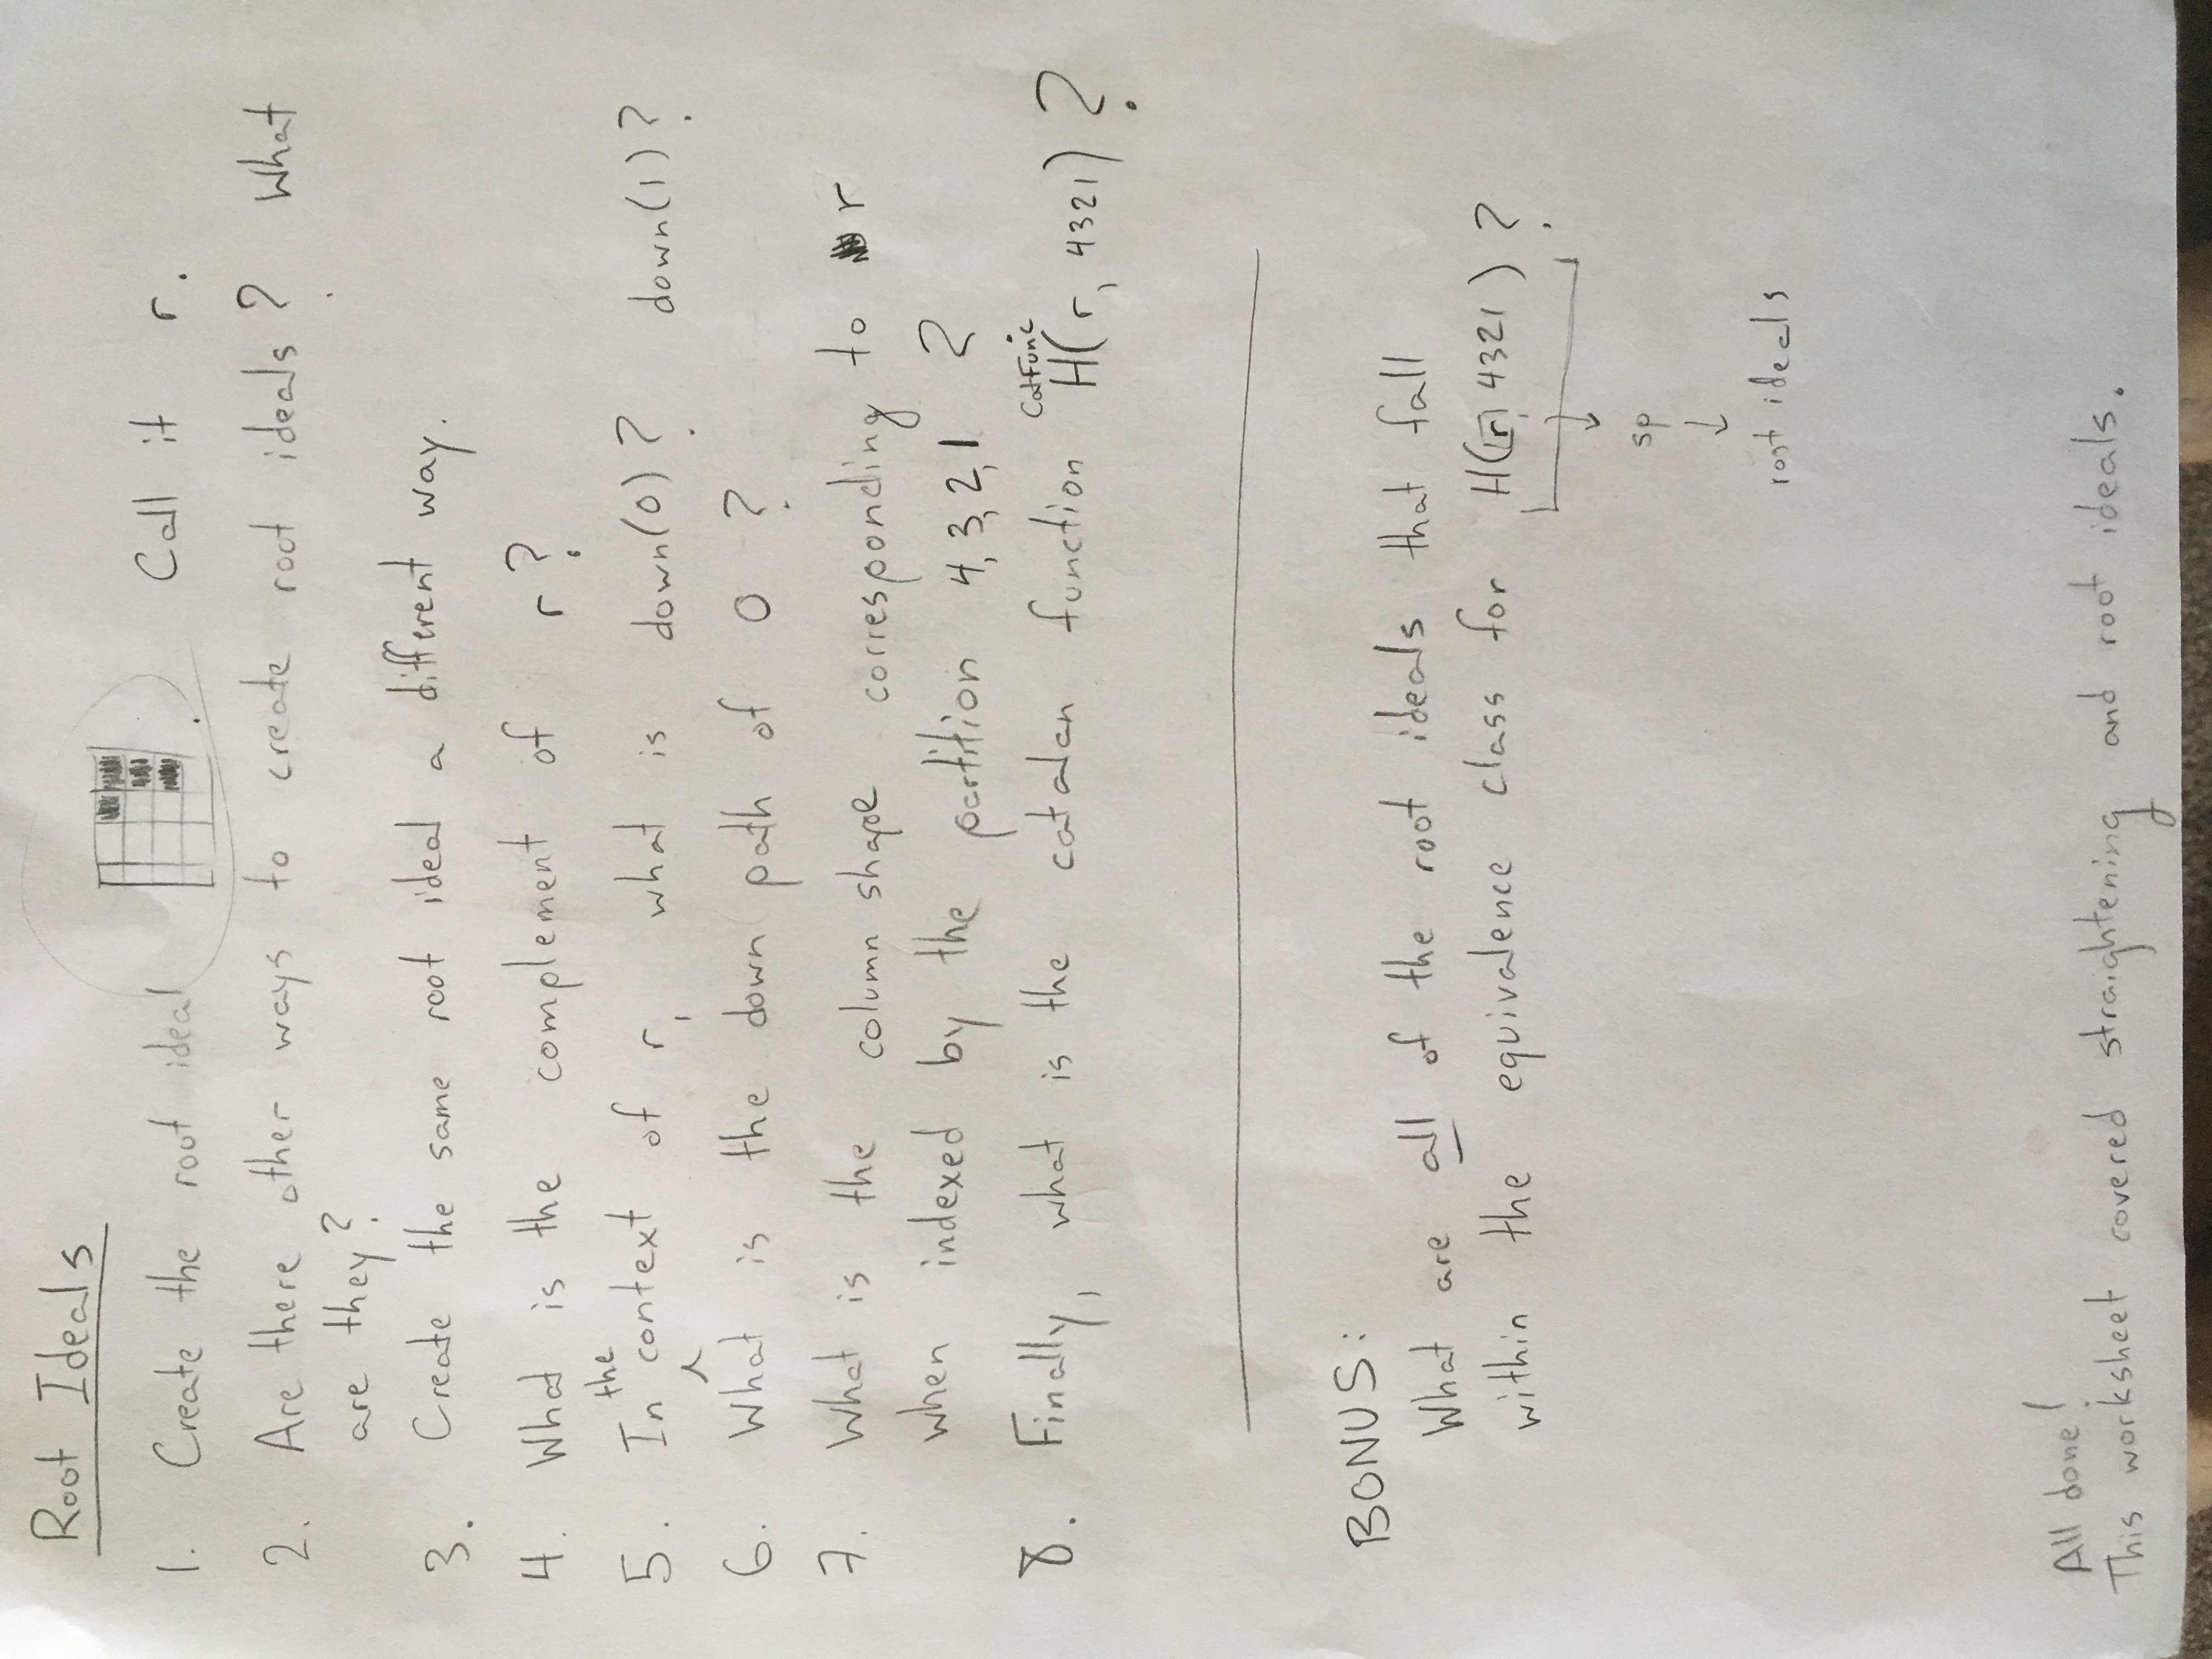 Root Ideals
1. Create the root ideal . Call it r.
2. Are there other ways to create root ideals? What
are they?
3. Create the same root ideal a different way.
4. What is the complement of r?
5. In the context of r, what is down(0)? down(1)?
6. What is the down path of 0?
7. What is the column shape corresponding to r
when indexed by the partition 4,3,2,1?
8. Finally, what is the catalan function CatFunc H(r, 4321)?
BONUS:
What are all of the root ideals that fall
within the equivalence class for H(r, 4321)?
sp
root ideals
All done!
This worksheet covered straightening and root ideals.